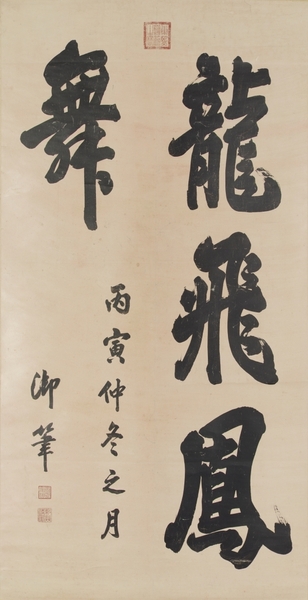 龍飛鳳
舞
丙寅仲冬之月
御筆